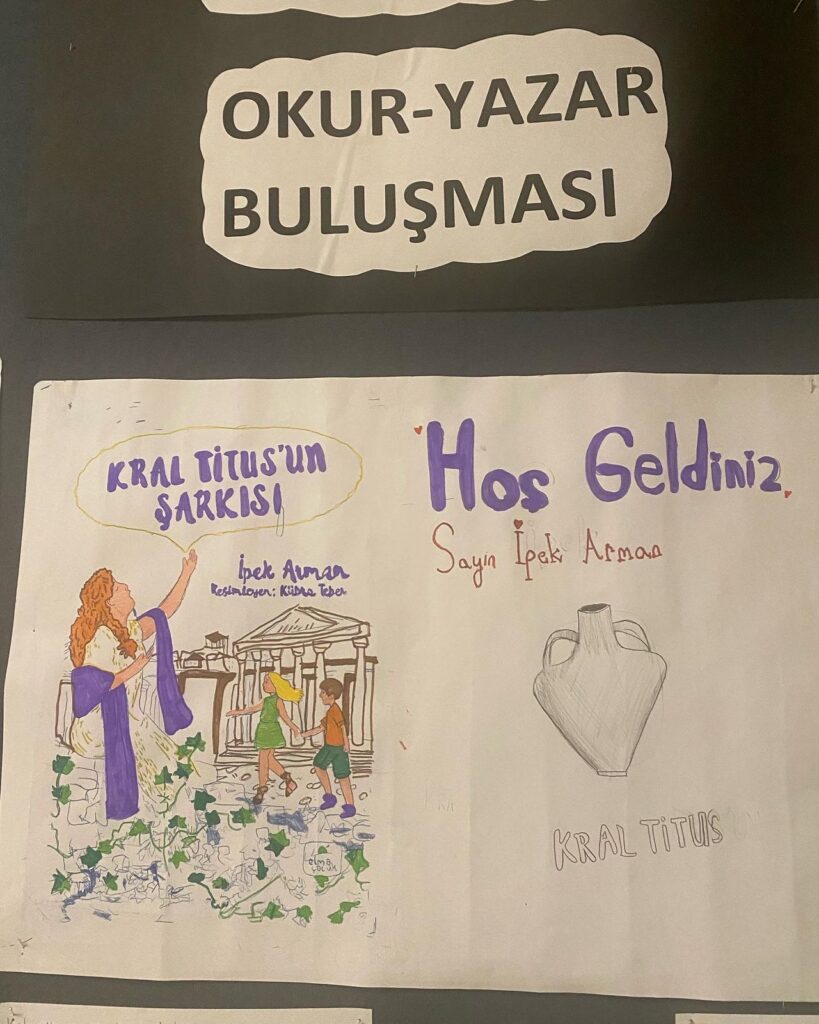 OKUR-YAZAR
BULUŞMASI
KRAL TİTUS'UN
ŞARKISI
İpek Arman
Resimleyen: Kübra Teber
elma
çocuk
Hoş Geldiniz
Sayın İpek Arman
KRAL TİTUS